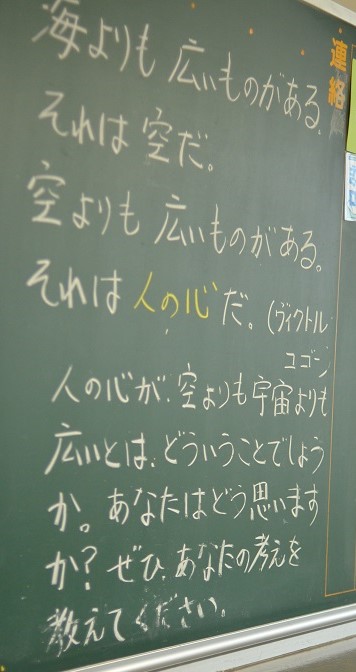 海よりも広いものがある。
それは空だ。
空よりも広いものがある。
それは人の心だ。(ヴィクトル
ユゴー)
人の心が、空よりも宇宙よりも
広いとは、どういうことでしょう
か。あなたはどう思います
か？ぜひ、あなたの考えを
教えてください。
連絡